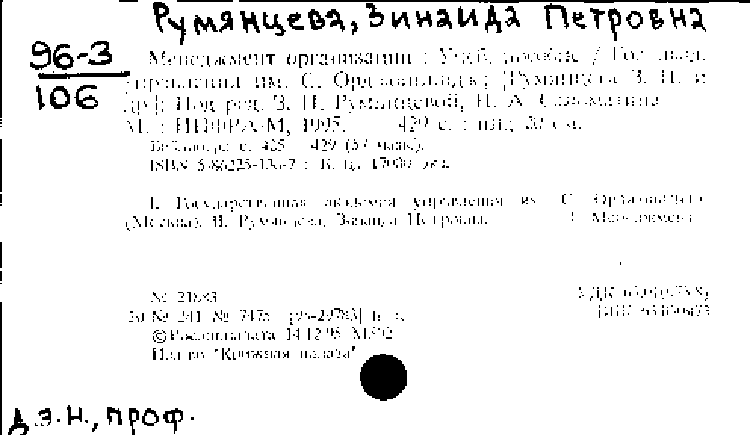 Румянцева, Зинаида Петровна
96-3
106
Менеджмент организации : Учеб. пособие / Гос. акад.
управления им. С. Орджоникидзе; [Румянцева З. П. и
др.]; Под ред. З. П. Румянцевой, Н. А.
М. : ИНФРА-М, 1995. 429 с. : ил.; 20 см.
Библиогр.: с. 425 - 429 (57 назв.).
ISBN 5-86225-136-7 : Б. ц. 17000 экз.
I. Государственная академия управления им. С. Орджоникидзе
(Москва). II. Румянцева, Зинаида Петровна. 1. Менеджмент
№ 21883
№ 241 № 7478 [96-29783] п. э.
УДК
ББК
© Роскнигпалата 14.12.95
Изд-во "Книжная палата"
д.э.н., проф.